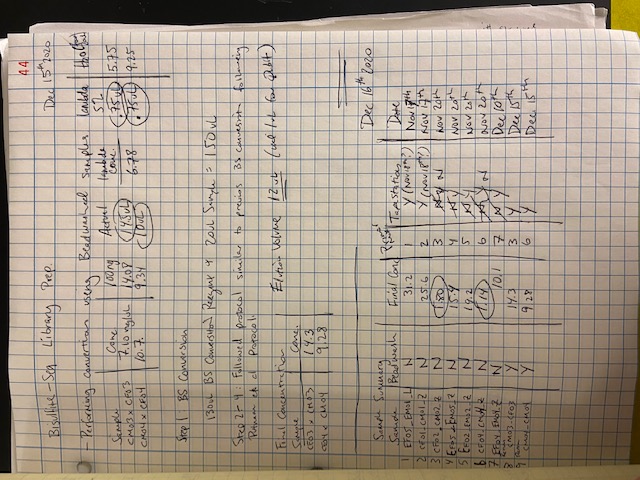 44
Bisulfite-Seq Library Prep. Dec 15th 2020
- Performing convertion useng Beadwashed samples lambda H2O
Sample Conc 100ng Actual lambda conc. 5%
CM03 x CF03 7.10 ng/uL 14.08 14.5uL 6.78 .75uL 5.75
CM04 x CF04 10.7. 9.34 10uL .75uL 9.25
Step 1: BS Conversion
130uL BS Conversion Reagent + 20uL Sample = 150uL
Step 2-4: Followed protocol similar to previos BS conversion following
Putnam et al Protocol:
Final Concentration Elution Volume 12uL (use 1uL for Qubit)
Sample Conc.
CF03 x CM03 14.3
CF04 x CM04 9.28
Dec 16th 2020
Sample Summary
Sample Beadwash Final Conc Primer Tapestation Date
1 EF05_EM01_L N 31.2 1 Y (Nov 18th?) Nov 17th
2 CF01_CM01_Z N 25.6 2 Y (Nov 18th?) Nov 17th
3 CF02_CM02_Z N 1.80 3 N Nov 20th
4 EF05_EM05_Z N 15.4 4 Y Nov 20th
5 EF02_EM02_Z N 19.2 5 Y Nov 20th
6 CF04_CM04_Z N 1.14 6 N Nov 20th
7 EF04_EM04_Z N 10.1 7 Y Dec 10th
8 CM03_CF03 Y 14.3 3 Y Dec 15th
9 CM04_CM04 Y 9.28 6 Y Dec 15th